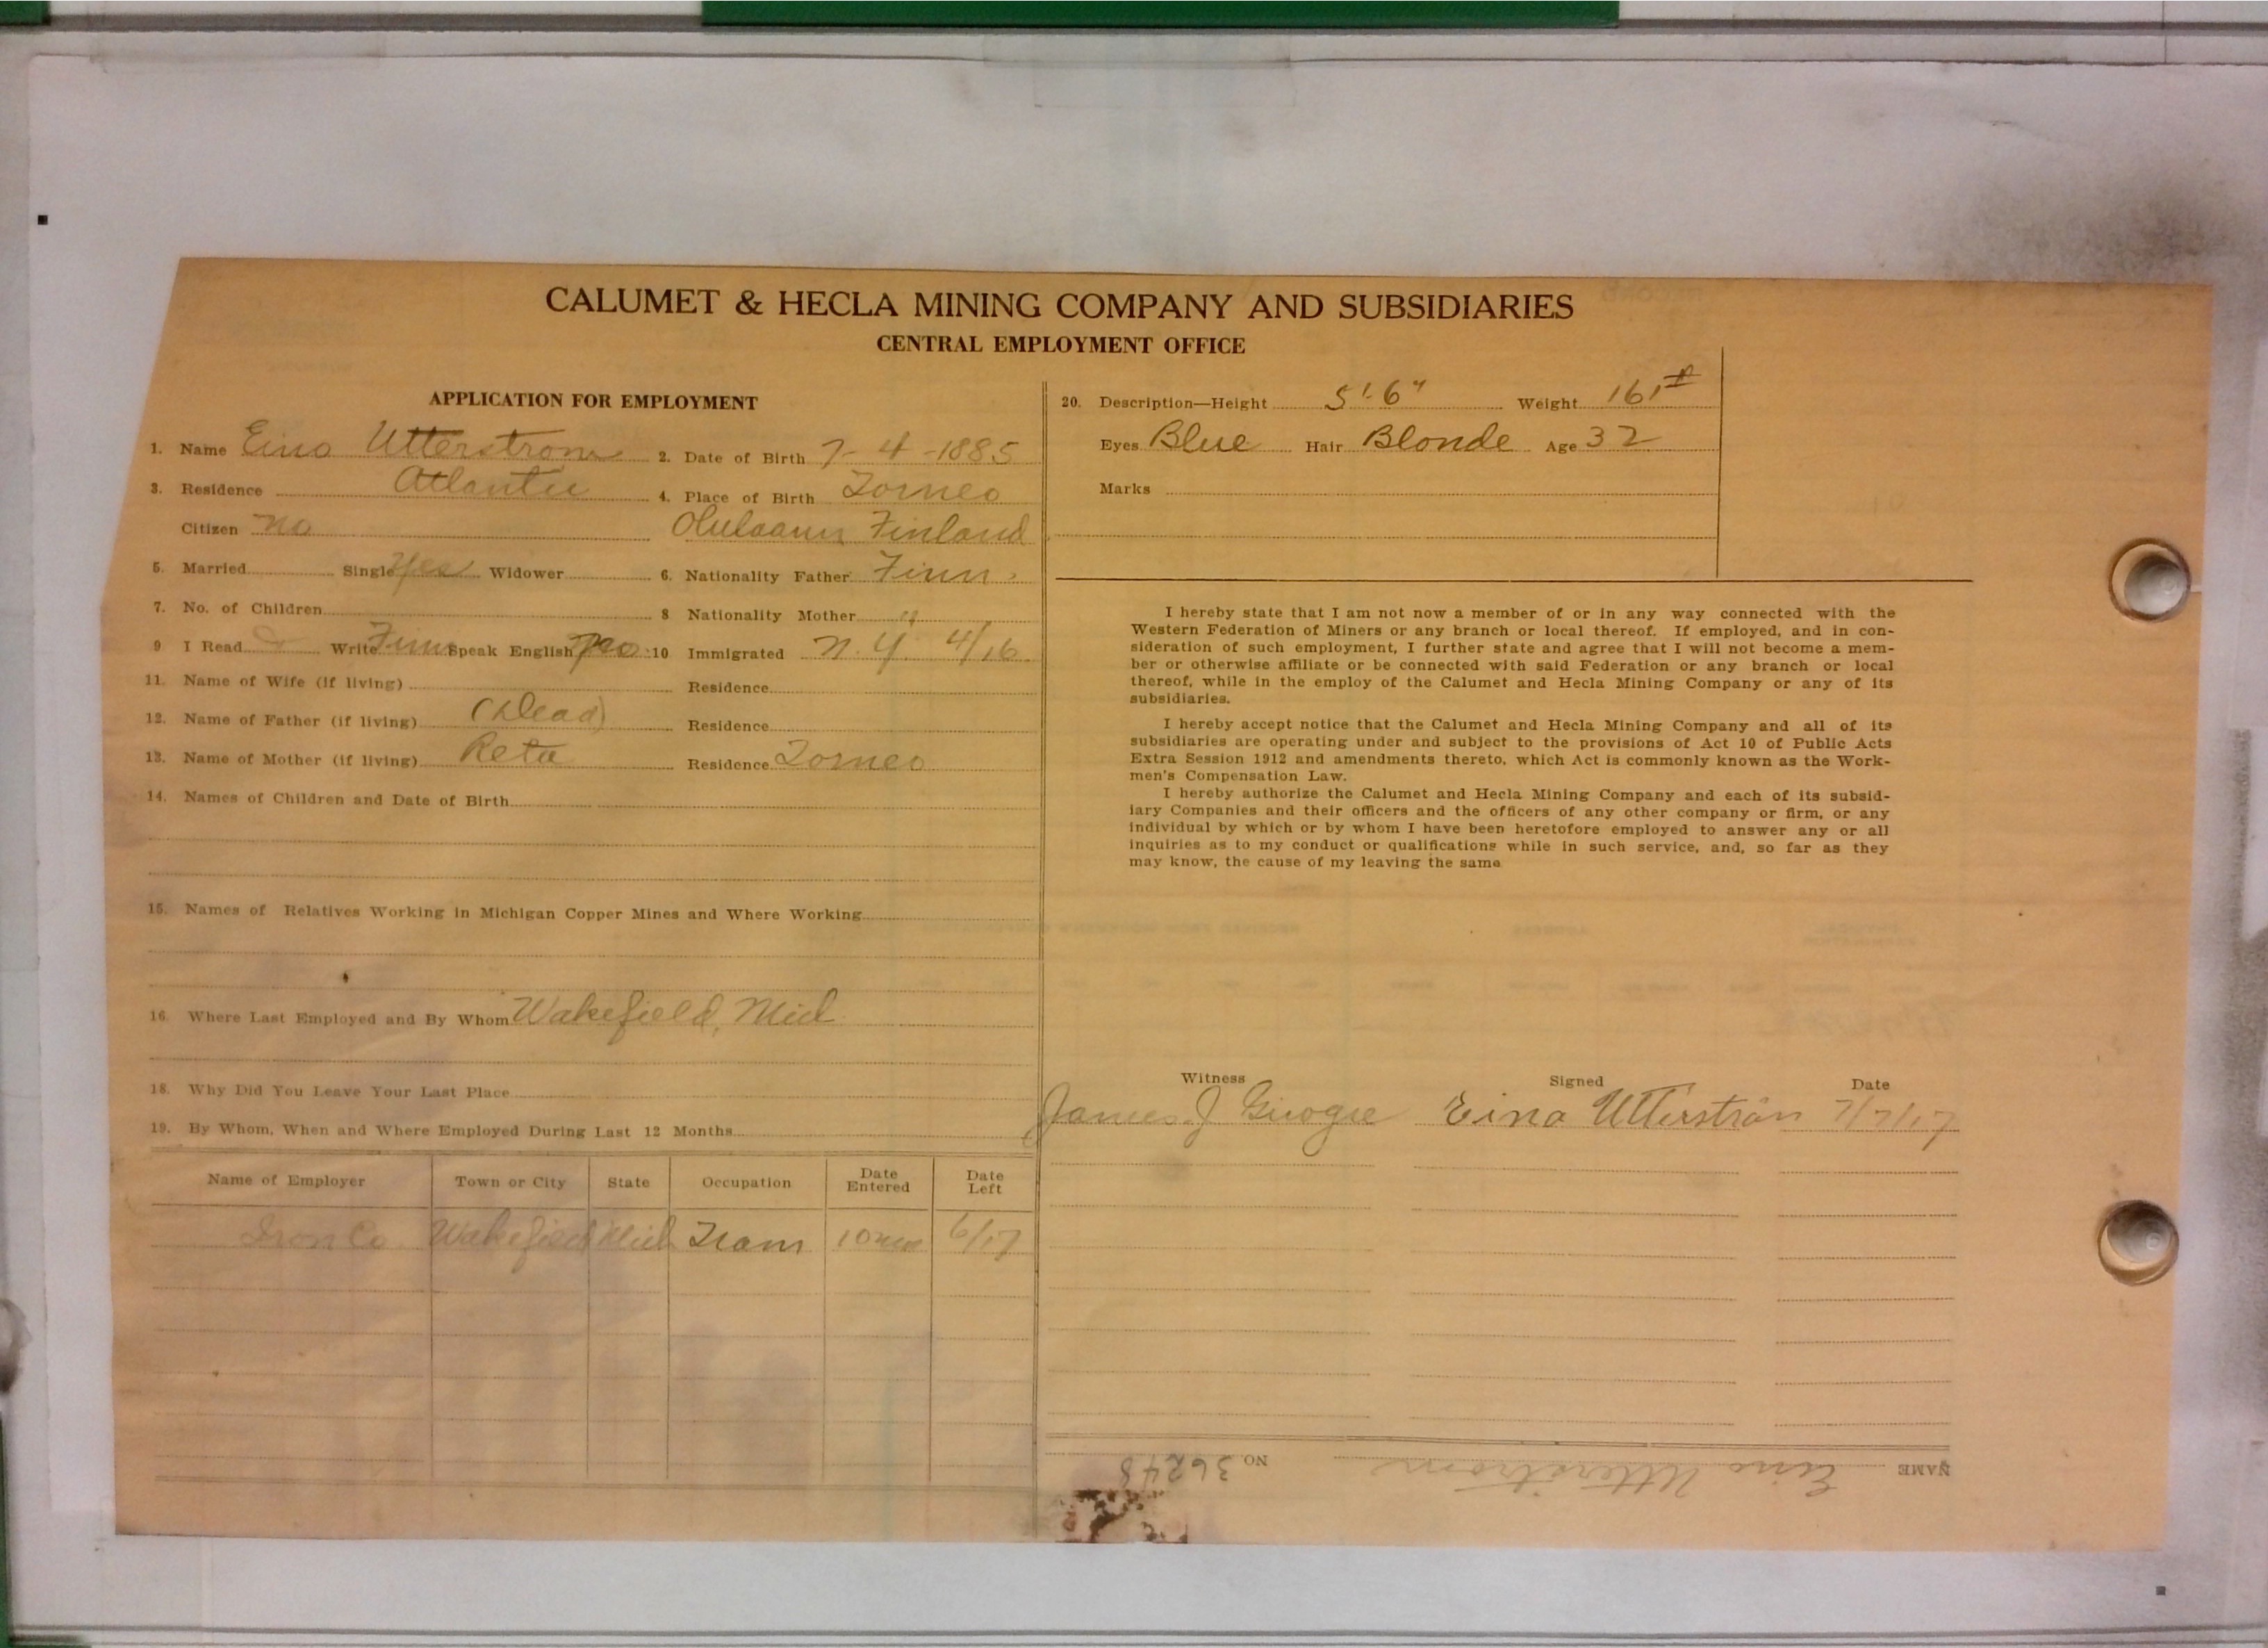 CALUMET & HECLA MINING COMPANY AND SUBSIDIARIES
CENTRAL EMPLOYMENT OFFICE
APPLICATION FOR EMPLOYMENT
1. Name Eino Utterstrom 2. Date of Birth 7-4-1885
3. Residence Atlantic 4. Place of Birth Torneo
Citizen no Finland
5. Married Single Yes Widower 6. Nationality Father Finn.
7. No. of Children 8 Nationality Mother "
9 I Read & Write Finn Speak English no 10 Immigrated N.Y. 4/16
11. Name of Wife (if living) Residence
12. Name of Father (if living) (Dead) Residence
13. Name of Mother (if living) Reta Residence Torneo
14. Names of Children and Date of Birth
15. Names of Relatives Working in Michigan Copper Mines and Where Working
16. Where Last Employed and By Whom Wakefield, Mich
18. Why Did You Leave Your Last Place
19. By Whom, When and Where Employed During Last 12 Months
Name of Employer Town or City State Occupation Date Entered Date Left
Iron Co. Wakefield Mich Tram 10 mos 6/17
20. Description—Height 5'-6" Weight 161#
Eyes Blue Hair Blonde Age 32
Marks
I hereby state that I am not now a member of or in any way connected with the
Western Federation of Miners or any branch or local thereof. If employed, and in con-
sideration of such employment, I further state and agree that I will not become a mem-
ber or otherwise affiliate or be connected with said Federation or any branch or local
thereof, while in the employ of the Calumet and Hecla Mining Company or any of its
subsidiaries.
I hereby accept notice that the Calumet and Hecla Mining Company and all of its
subsidiaries are operating under and subject to the provisions of Act 10 of Public Acts
Extra Session 1912 and amendments thereto, which Act is commonly known as the Work-
men's Compensation Law.
I hereby authorize the Calumet and Hecla Mining Company and each of its subsid-
iary Companies and their officers and the officers of any other company or firm, or any
individual by which or by whom I have been heretofore employed to answer any or all
inquiries as to my conduct or qualifications while in such service, and, so far as they
may know, the cause of my leaving the same
Witness Signed Date
James J Eino Utterström 7/7/17
NAME Eino Utterstrom NO 36248